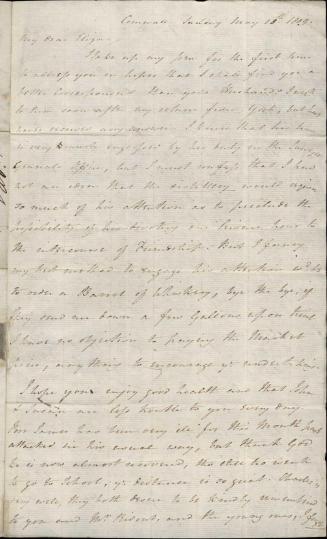 Cornwall Sunday May 1819.
My Dear Eliza
I take up my pen for the first time
to address you in hopes that I shall find you a
better Correspondent than your Husband. I wrote
to him soon after my return from York, but
have received any answer. I know that his time
is very much engrossed by his duty in the
General's Office, but I must confess that I had
not an idea that the distillery would require
so much of his attention as to preclude the
possibility of his devoting one leisure hour to
the intercourse of Friendship. But I fancy
my best method to engage his attention wd. be
to order a Barrel of Whiskey, bye the bye, if
they send me down a few Gallons upon trial
I have no objection to paying the Market
price, any thing to encourage ye undertaking.
I hope you enjoy good health and that John
& are less trouble to you every day.
Poor James has been very ill for this Month past,
attacked in his usual way, but thank God
he is now almost recovered, tho still too weak
to go to School, ye distance is so great. Charles
very well, they both desire to be kindly remembered
to you and Mr. and the young ones,